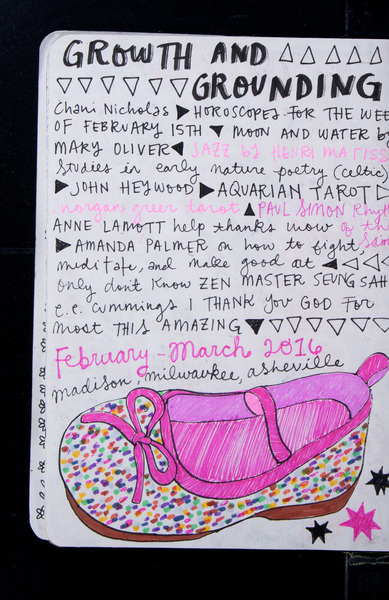 GROWTH AND
GROUNDING
Chani Nicholas ▶ HOROSCOPES FOR THE WEE
OF FEBRUARY 15TH ▼ MOON AND WATER by
MARY OLIVER ◀ JAZZ by HENRI MATISS
Studies in early nature poetry (celtic)
▶ JOHN HEYWOOD ▶ AQUARIAN TAROT
morgan greer tarot ▲ PAUL SIMON Rhyth
ANNE LAMOTT help thanks wow of th
▶ AMANDA PALMER on how to fight, Sam
meditate, and make good art ◀
only don't know ZEN MASTER SEUNG SAH
e.e. cummings I THANK YOU GOD FOR
most THIS AMAZING ▼
February - March 2016
madison, milwaukee, asheville